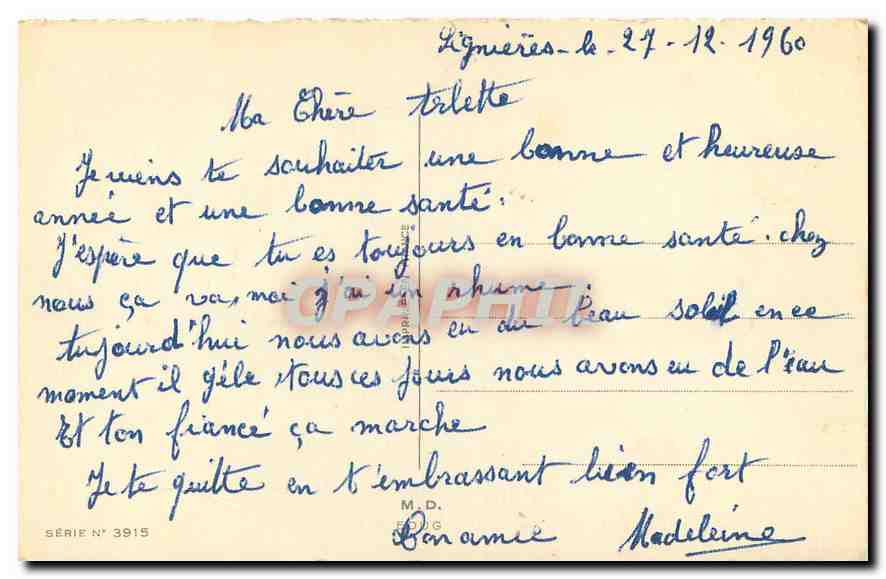 Lignières - le - 27 - 12 - 1960
Ma Chère Arlette
Je viens te souhaiter une bonne et heureuse
année et une bonne santé.
J'espère que tu es toujours en bonne santé. chez
nous ça va, moi j'ai un rhume.
Aujourd'hui nous avons eu du beau soleil en ce
moment il gèle, tous ces jours nous avons eu de l'eau
Et ton fiancé ça marche
Je te quitte en t'embrassant bien fort
Ton amie Madeleine
M. D.
SÉRIE N° 3915
CPAPHIL